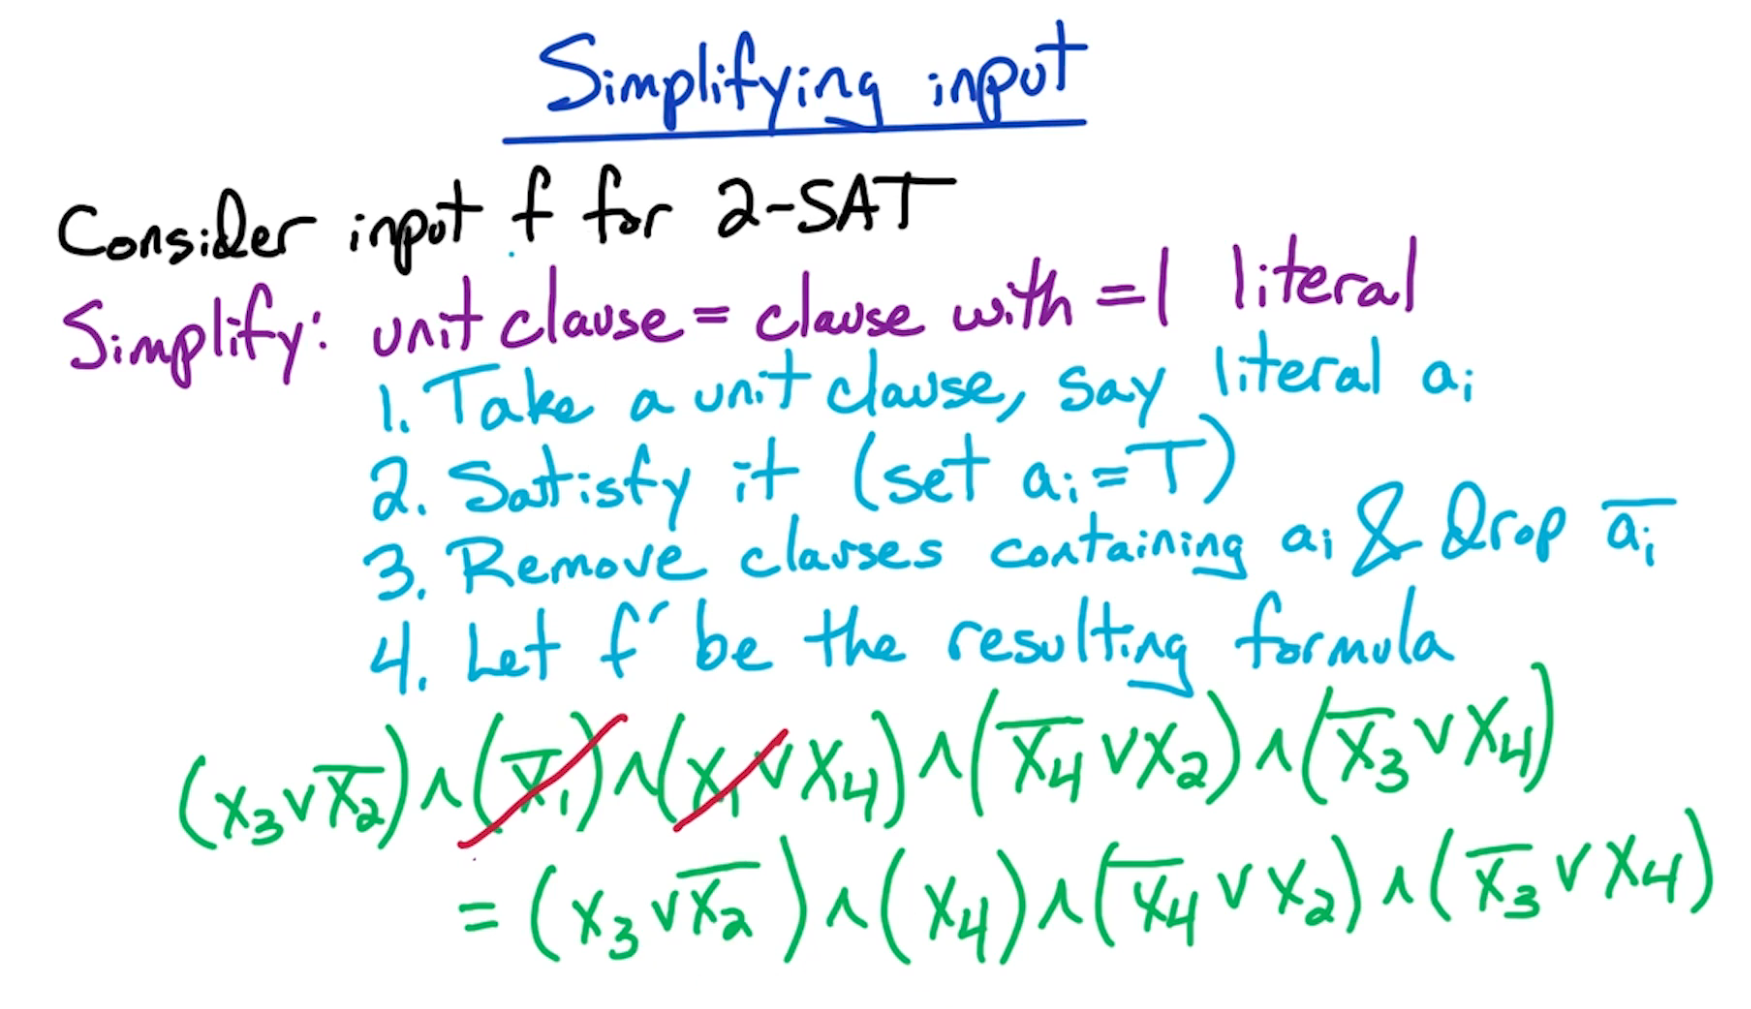 Simplifying input
Consider input f for 2-SAT
Simplify: unit clause = clause with =1 literal
1. Take a unit clause, say literal aᵢ
2. Satisfy it (set aᵢ=T)
3. Remove clauses containing aᵢ & drop a̅ᵢ
4. Let f′ be the resulting formula
(x₃∨x̅₂)∧(x̅₁)∧(x₁∨x₄)∧(x̅₄∨x₂)∧(x̅₃∨x₄)
=(x₃∨x̅₂)∧(x₄)∧(x̅₄∨x₂)∧(x̅₃∨x₄)